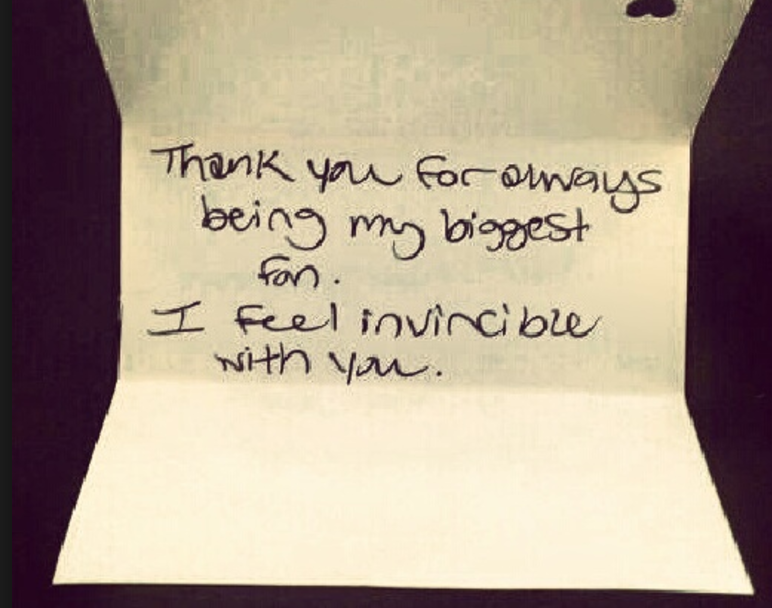 Thank you for always
being my biggest
fan.
I feel invincible
with you.